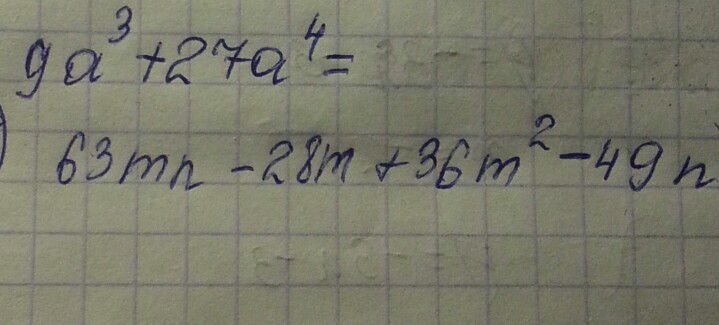 9a³+27a⁴=
) 63mn-28m+36m²-49n